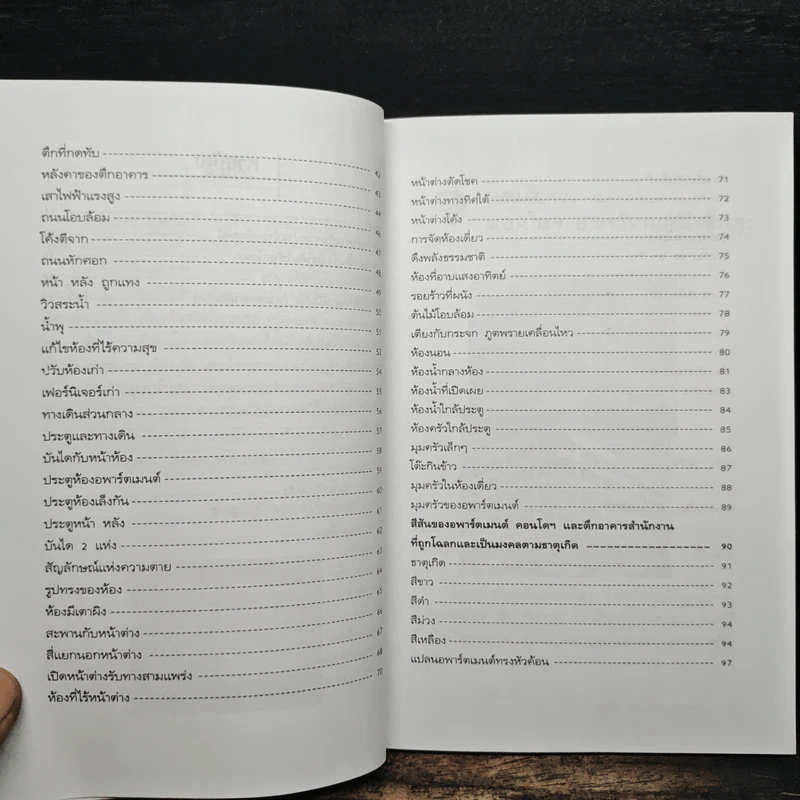 ตึกที่กดทับ 42
หลังคาของตึกอาคาร 43
เสาไฟฟ้าแรงสูง 44
ถนนโอบล้อม 46
โค้งตีจาก 47
ถนนหักศอก 48
หน้า หลัง ถูกแทง 49
วิวสระน้ำ 50
น้ำพุ 51
แก้ไขห้องที่ไร้ความสุข 52
ปรับห้องเก่า 54
เฟอร์นิเจอร์เก่า 55
ทางเดินส่วนกลาง 56
ประตูและทางเดิน 57
บันไดกับหน้าห้อง 58
ประตูห้องอพาร์ตเมนต์ 59
ประตูห้องเล็งกัน 60
ประตูหน้า หลัง 61
บันได 2 แห่ง 62
สัญลักษณ์แห่งความตาย 63
รูปทรงของห้อง 64
ห้องมีเตาผิง 65
สะพานกับหน้าต่าง 66
สี่แยกนอกหน้าต่าง 67
เปิดหน้าต่างรับทางสามแพร่ง 68
ห้องที่ไร้หน้าต่าง 70
หน้าต่างตัดโชค 71
หน้าต่างทางทิศใต้ 72
หน้าต่างโค้ง 73
การจัดห้องเดี่ยว 74
ดึงพลังธรรมชาติ 75
ห้องที่อาบแสงอาทิตย์ 76
รอยร้าวที่ผนัง 77
ต้นไม้โอบล้อม 78
เตียงกับกระจก ภูตพรายเคลื่อนไหว 79
ห้องนอน 80
ห้องน้ำกลางห้อง 81
ห้องน้ำที่เปิดเผย 83
ห้องน้ำใกล้ประตู 84
ห้องครัวใกล้ประตู 85
มุมครัวเล็กๆ 86
โต๊ะกินข้าว 87
มุมครัวในห้องเดี่ยว 88
มุมครัวของอพาร์ตเมนต์ 89
สีสันของอพาร์ตเมนต์ คอนโดฯ และตึกอาคารสำนักงาน
ที่ถูกโฉลกและเป็นมงคลตามธาตุเกิด 90
ธาตุเกิด 91
สีขาว 92
สีดำ 93
สีม่วง 94
สีเหลือง 94
แปลนอพาร์ตเมนต์ทรงหัวค้อน 97